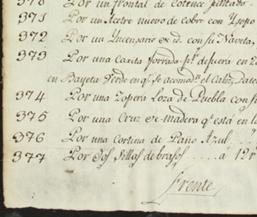 370 Por un frontal de Cotence pintado
371 Por un Acetre nuevo de Cobre con Ysopo
372 Por un Yncensario ex id. con su Naveta,
373 Por una Caxita forrada pr. defuera en
en Bayeta Verde en qe. se acomoda el Caliz, Paten
374 Por una Zopera Loza de Puebla con su
375 Por una Cruz ex madera qe. está en la
376 Por una Cortina de Paño Azul
377 Por dos Sillas de brasos . . . . à 12 r
Frente